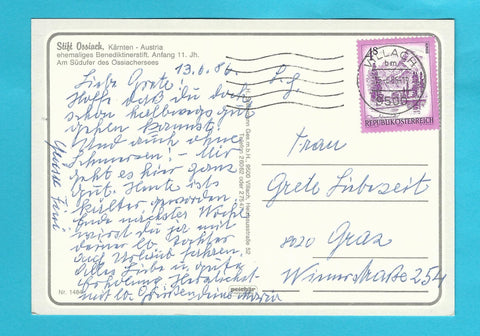 Stift Ossiach, Kärnten - Austria
ehemaliges Benediktinerstift. Anfang 11. Jh.
Am Südufer des Ossiachersees
13.6.86
Liebe Grete!
Hoffe daß du doch
schon halbwegs gut
gehen kannst!
Und auch ohne
Schmerzen! - Mir
geht es hier ganz
gut. Heute ist
kälter geworden.
Ende nächster Woche
wirst du ja mit
deiner lb. Tochter
auf Urlaub fahren.
Alles Liebe u. gute
Erholung Herzlichst
mit lb. Grüßen deine Maria
Nr. 1484
9500 Villach,
VILLACH
9500
4S
REPUBLIK ÖSTERREICH
Frau
Grete Liebezeit
8020 Graz
Wienerstraße 254